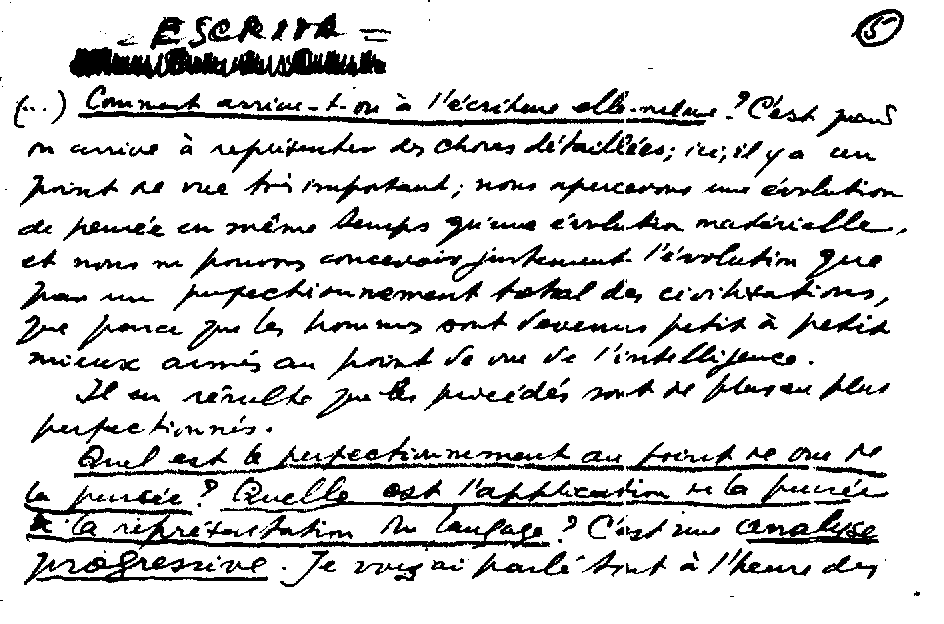 = ESCRITA =
5
(...) Comment arrive-t-on à l'écriture elle-même ? C'est quand
on arrive à représenter des choses détaillées; ici, il y a un
point de vue très important; nous apercevons une évolution
de pensée en même temps qu'une évolution matérielle,
et nous ne pouvons concevoir justement l'évolution que
par un perfectionnement total des civilisations,
que parce que les hommes sont devenus petit à petit
mieux armés au point de vue de l'intelligence.
Il en résulte que les procédés sont de plus en plus
perfectionnés.
Quel est le perfectionnement au point de vue de
la pensée ? Quelle est l'application de la pensée
à la représentation du langage ? C'est une analyse
progressive. Je vous ai parlé tout à l'heure des